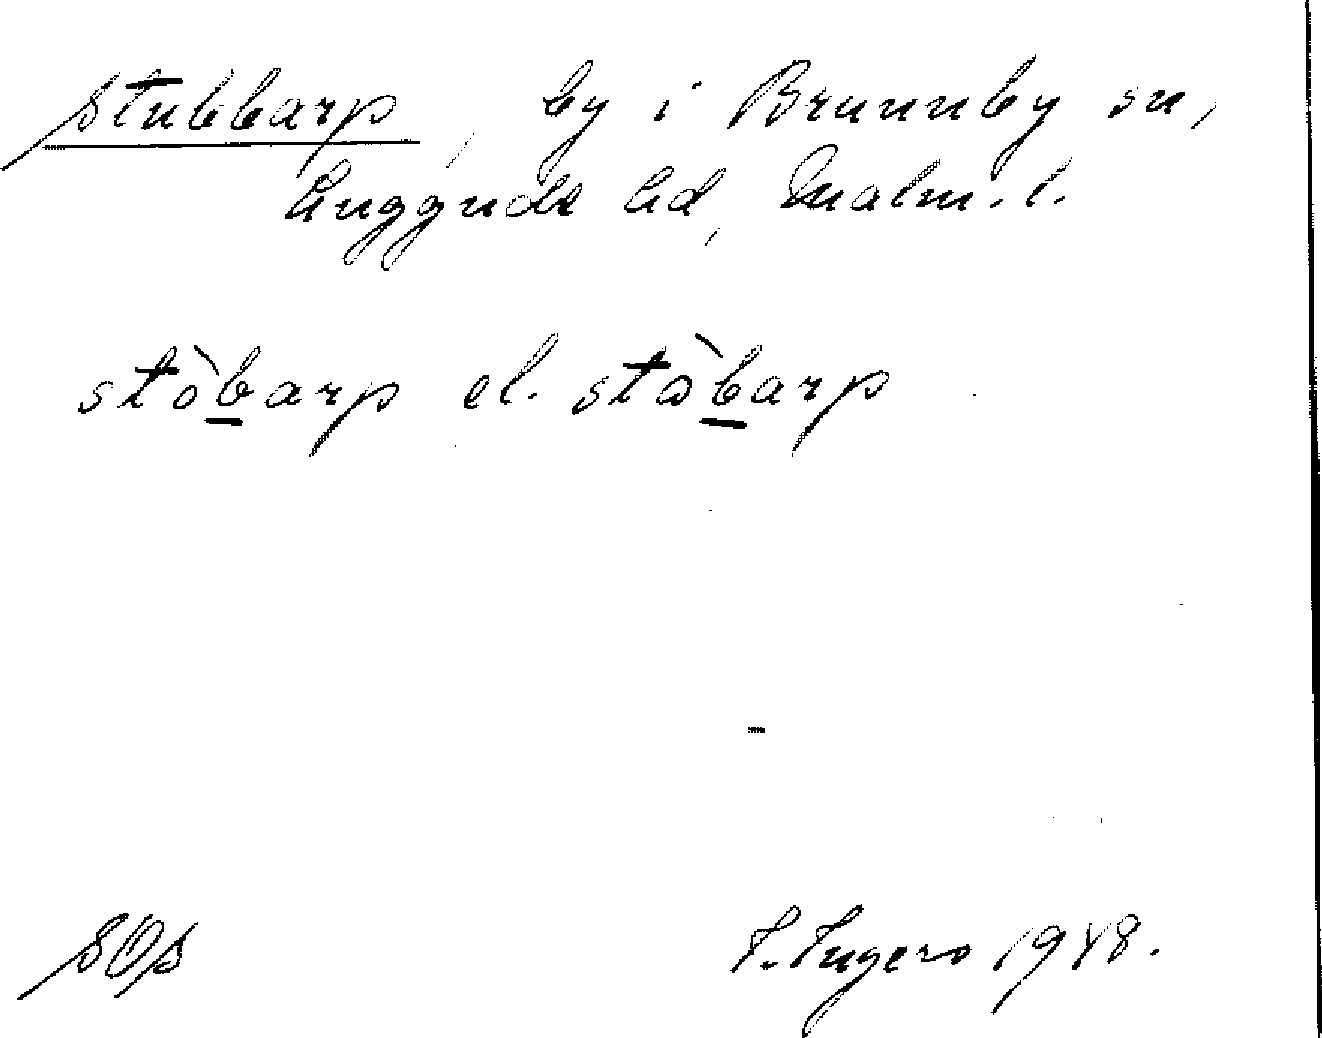 Stubbarp, by i Brunnby sn,
Luggude hd, Malm. l.
stòb̲arp el. stàb̲arp
SOS
I. Ingers 1948.